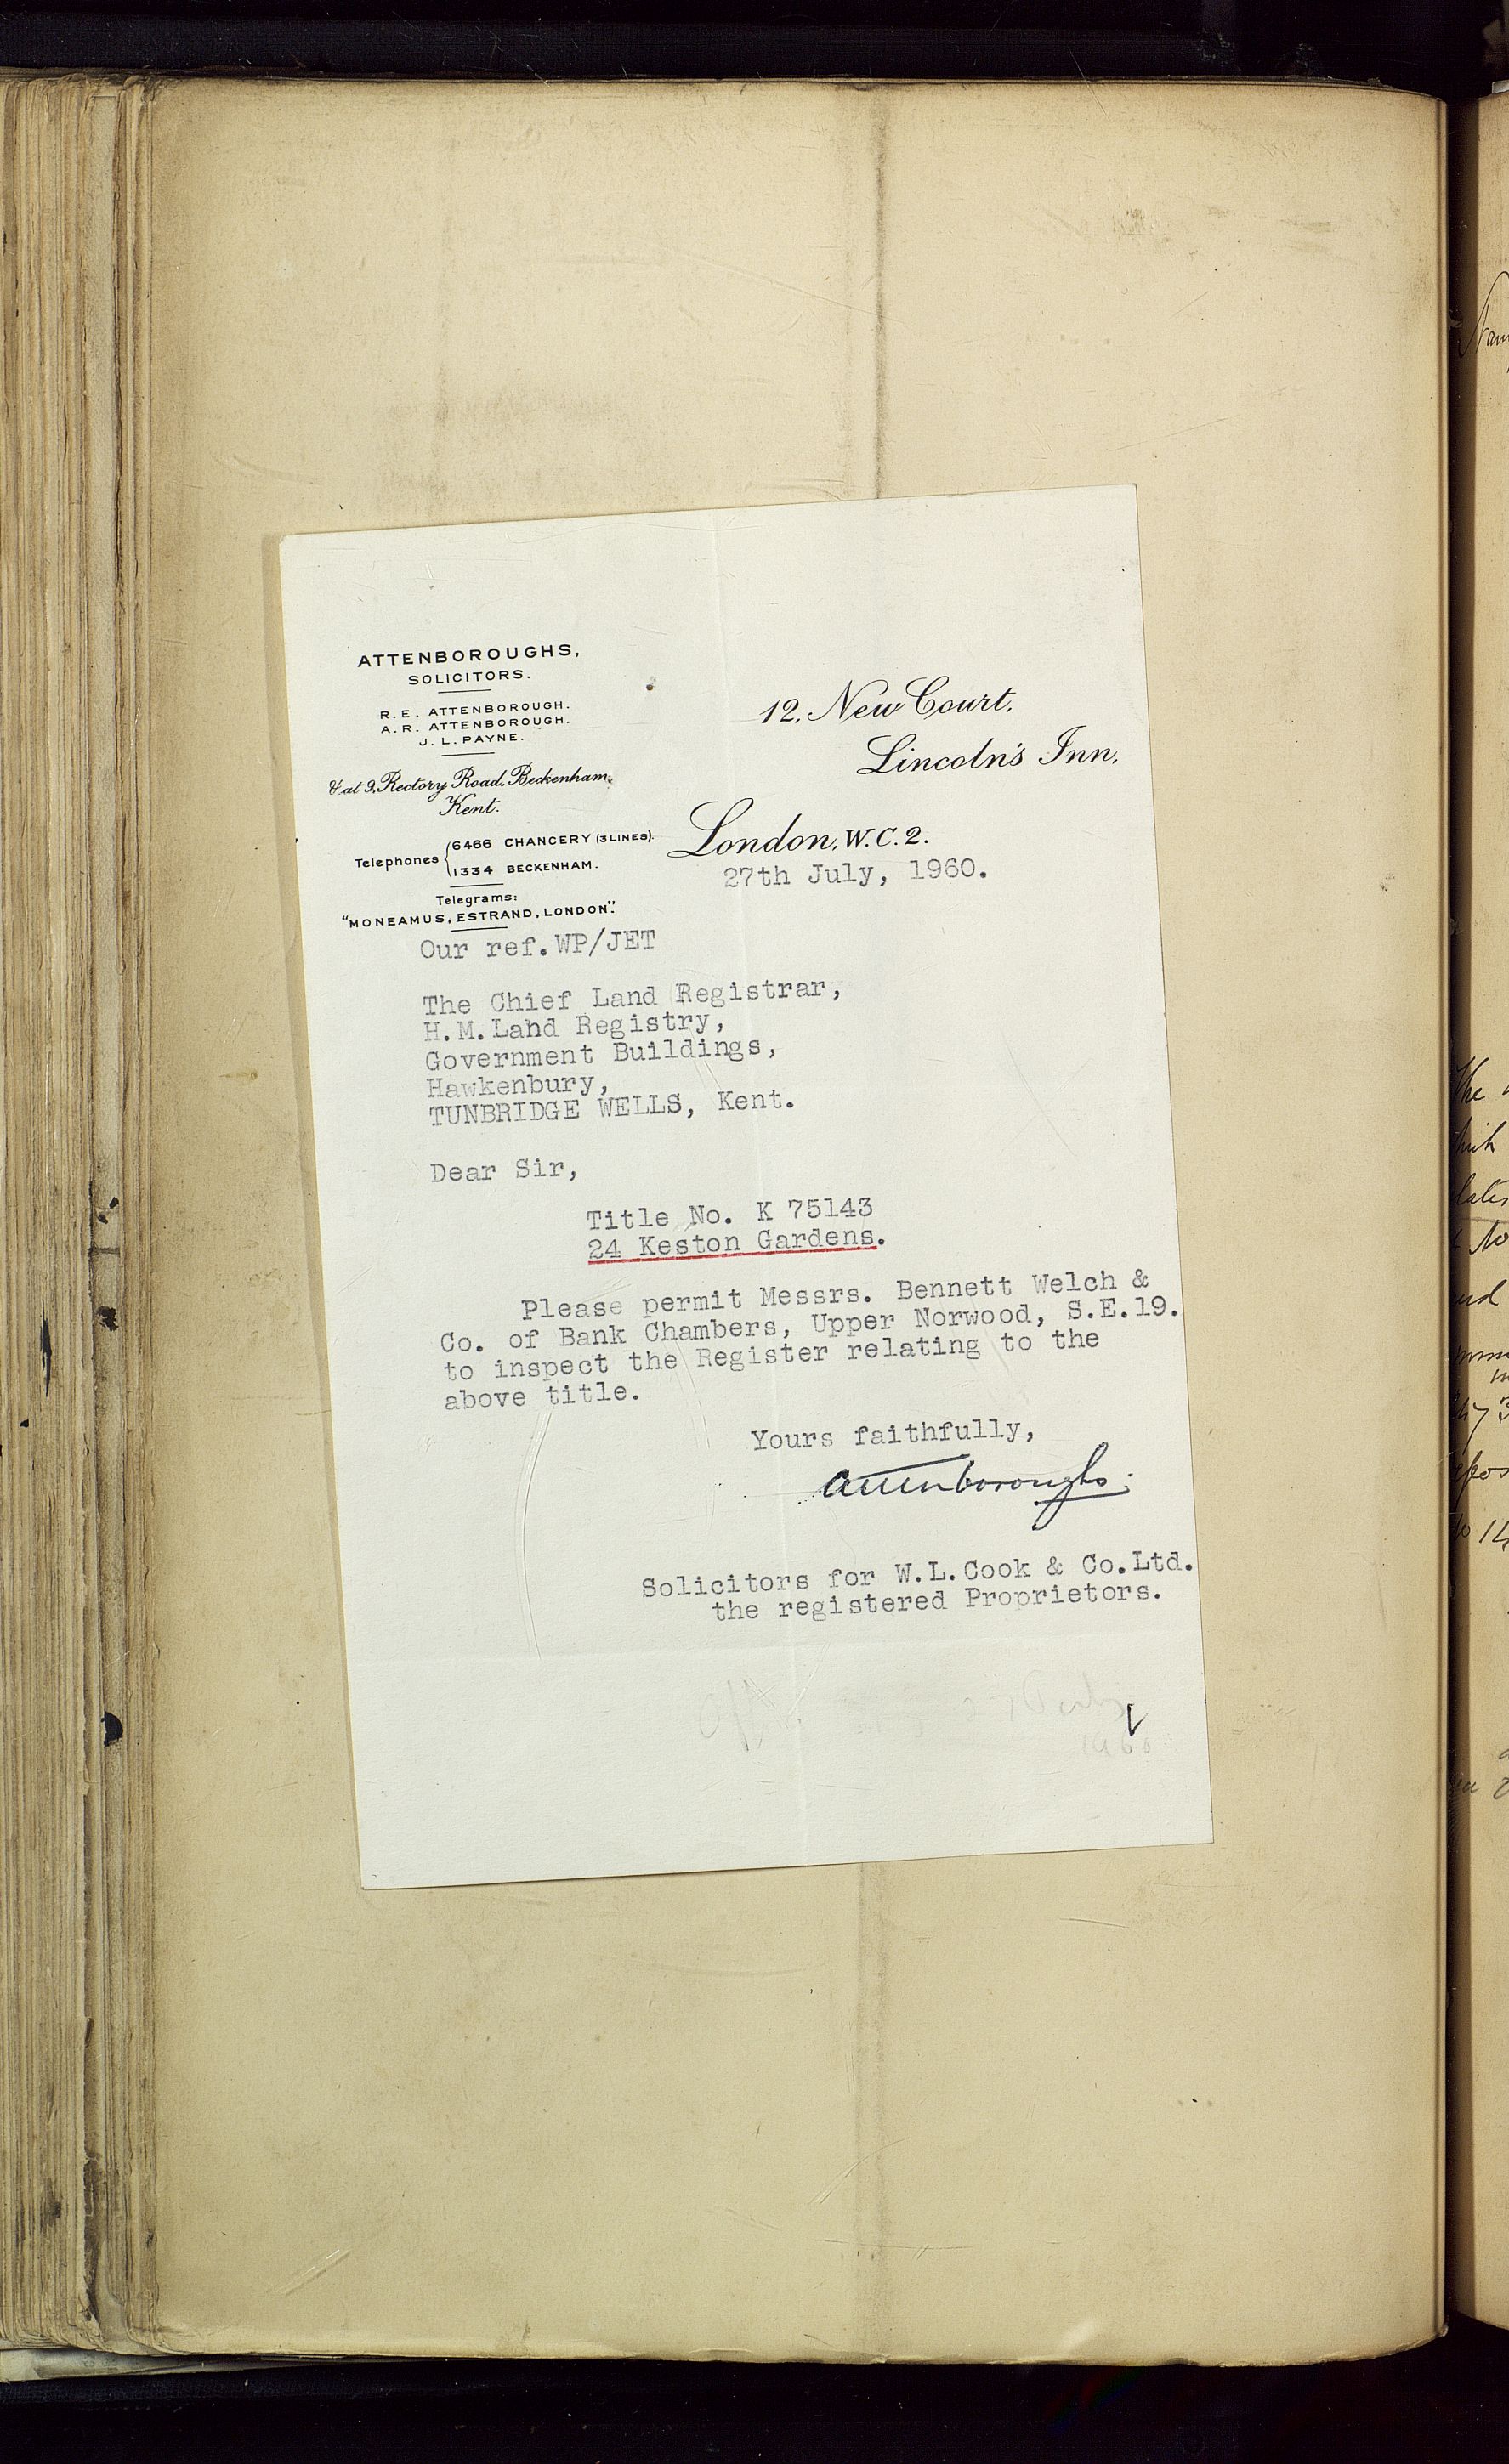 ATTENBOROUGHS,
SOLICITORS.
R.E. ATTENBOROUGH.
A.R. ATTENBOROUGH.
J.L. PAYNE.
& at 9, Rectory Road, Beckenham,
Kent.
Telephones { 6466 CHANCERY (3 LINES).
1334 BECKENHAM.
Telegrams:
"MONEAMUS, ESTRAND, LONDON".
12, New Court,
Lincoln's Inn,
London, W.C.2.
27th July, 1960.
Our ref.WP/JET
The Chief Land Registrar,
H.M.Land Registry,
Government Buildings,
Hawkenbury,
TUNBRIDGE WELLS, Kent.
Dear Sir,
Title No. K 75143
24 Keston Gardens.
Please permit Messrs. Bennett Welch &
Co. of Bank Chambers, Upper Norwood, S.E.19.
to inspect the Register relating to the
above title.
Yours faithfully,
Attenboroughs.
Solicitors for W.L.Cook & Co.Ltd.
the registered Proprietors.